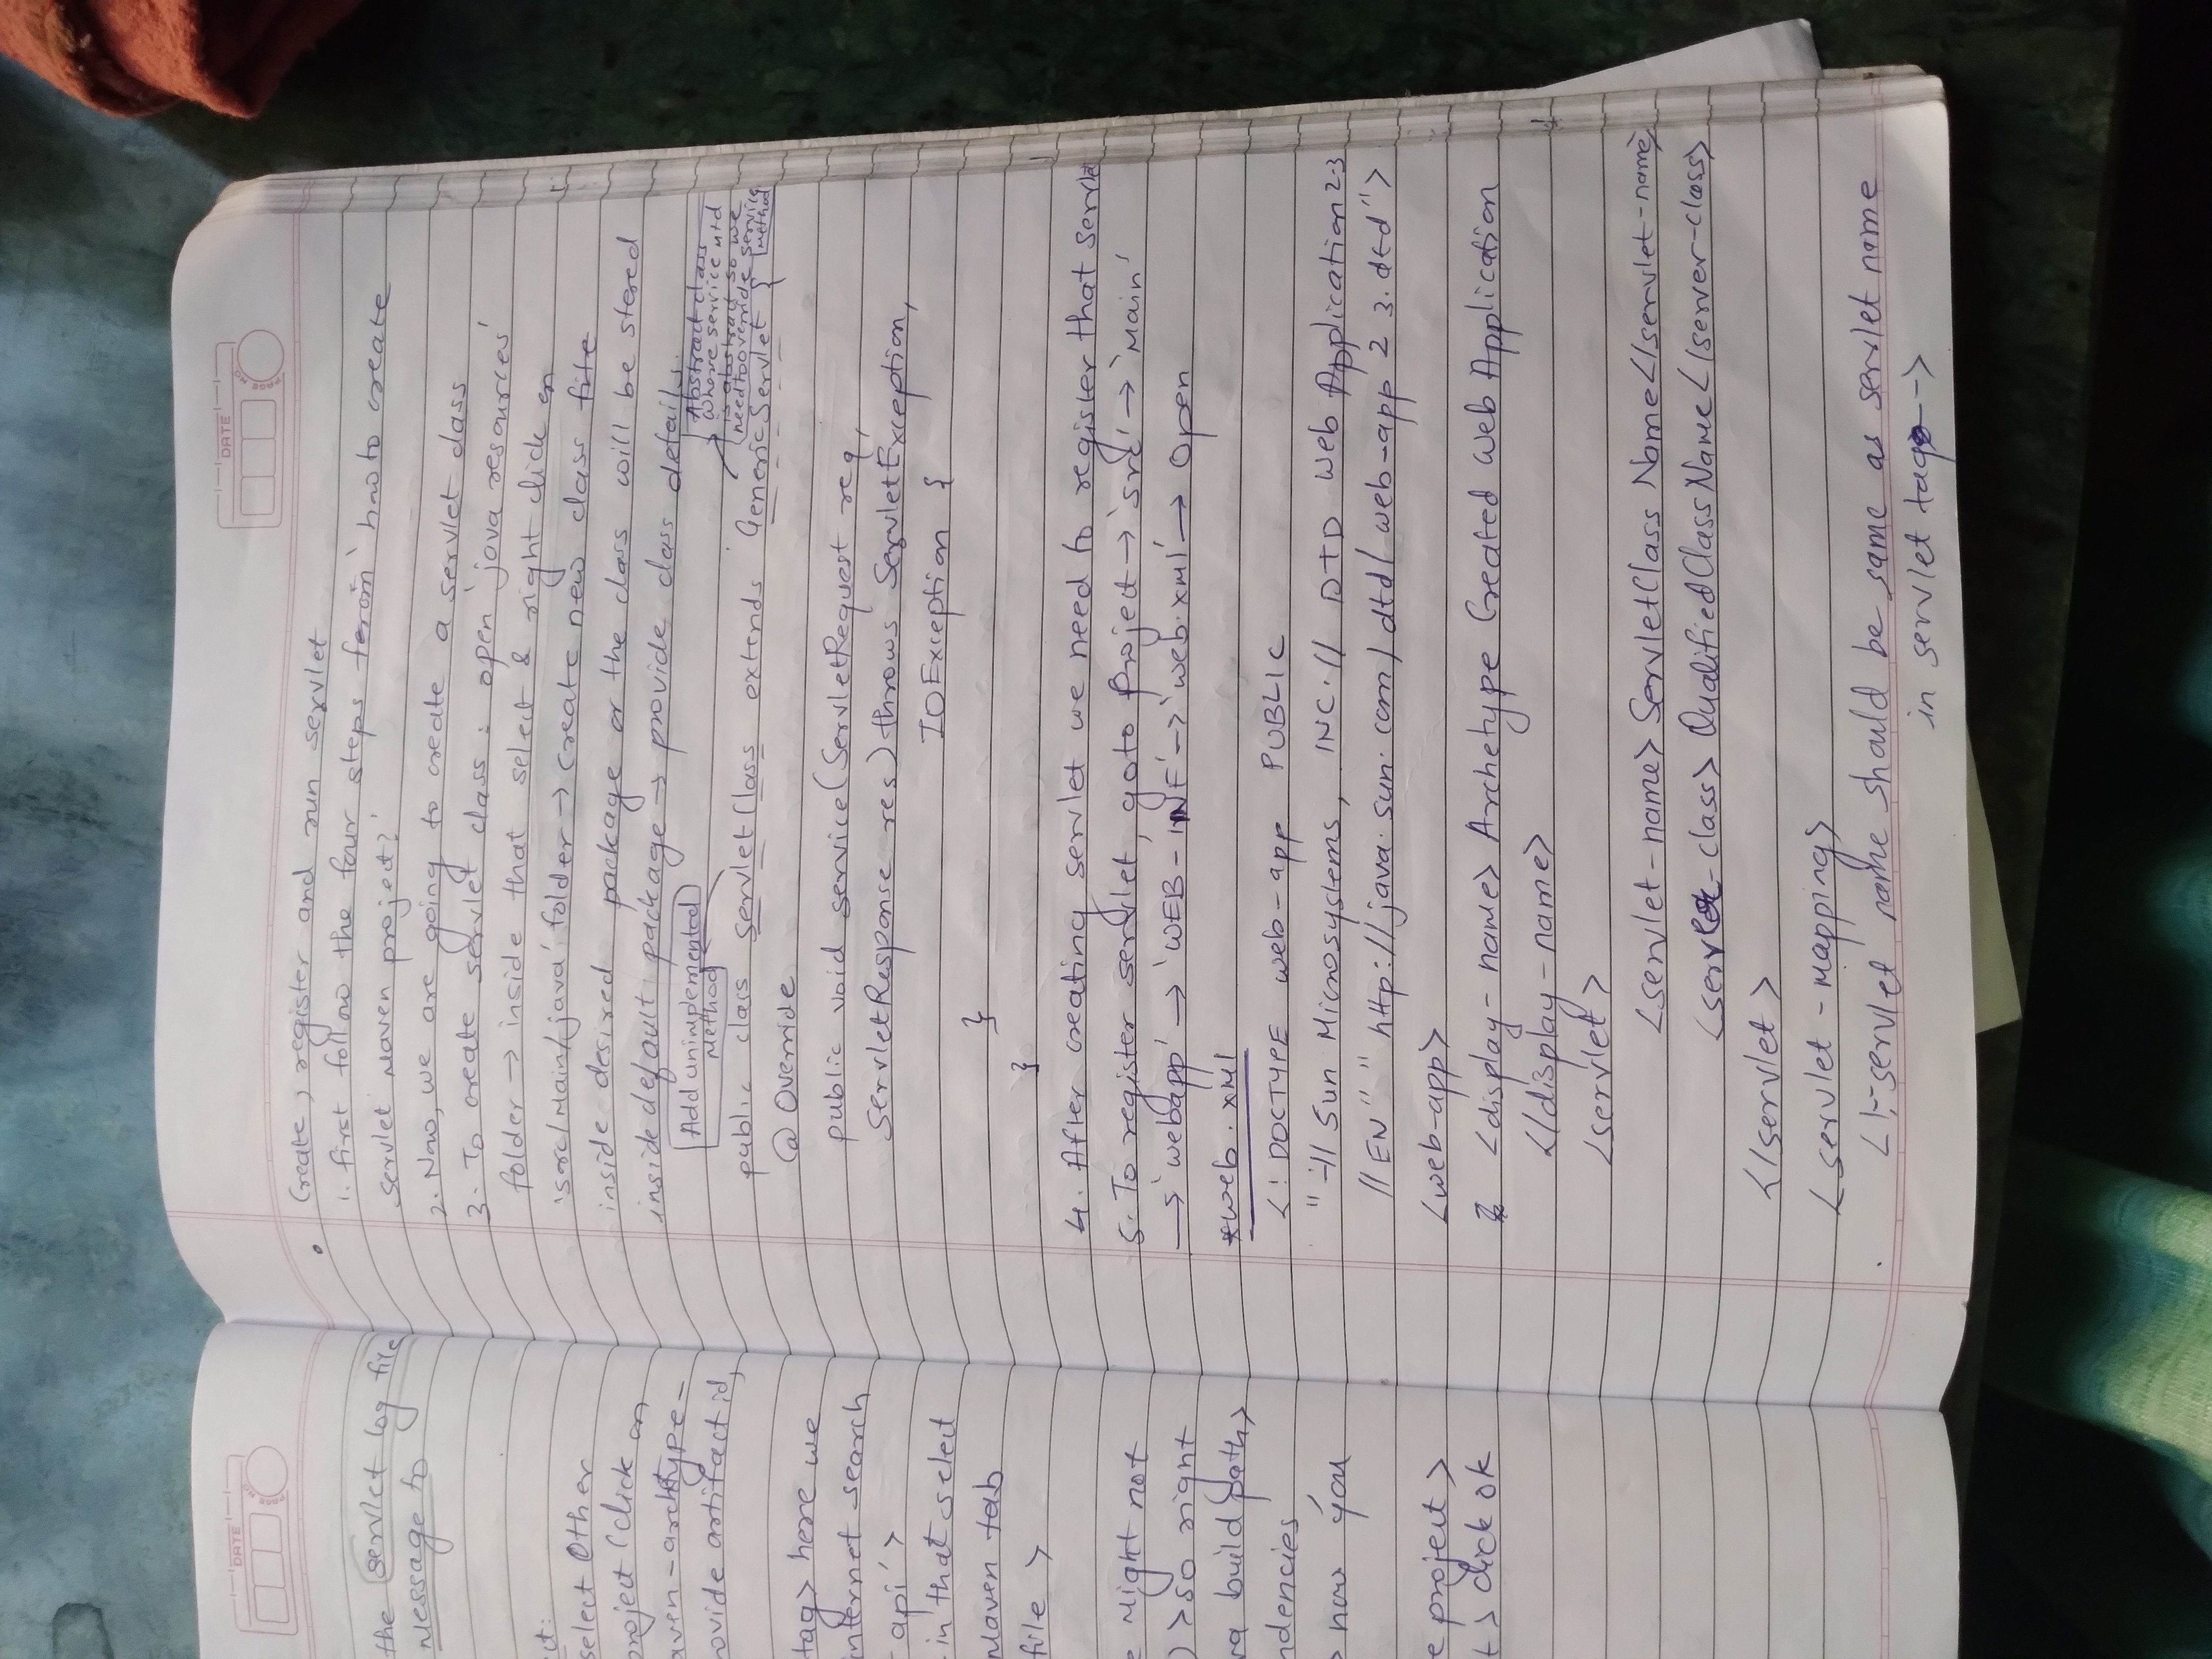 DATE
PAGE NO.
the servlet log file
message to
ect:
select Other
project (click on
aven-archtype-
ovide artifact id,
tag> here we
internet search
api'>
in that select
Maven tab
file >
e Might not
) > so right
va build path>
ndencies
> now you
e project >
t > click ok
DATE
PAGE NO.
• Create, register and run servlet
1. first follow the four steps from 'how to create
servlet Maven project?'
2. Now, we are going to create a servlet class
3. To create servlet class : open 'java resources'
folder → inside that select & right click on
'src/main/java' folder → create new class file
inside desired package or the class will be stored
inside default package → provide class details.
Add unimplemented
Method
Abstract class
where service mtd
is abstract so we
need to override service
Method
public class servletClass extends GenericServlet {
@ Override
public void service(ServletRequest req,
ServletResponse res) throws ServletException,
IOException {
}
}
4. After creating servlet we need to register that servlet
5. To register servlet, goto Project → 'src' → 'Main'
→ 'webapp' → 'WEB-INF' → 'web.xml' → Open
*web.xml
<! DOCTYPE web-app PUBLIC
"-// Sun Microsystems, INC.// DTD Web Application 2.3
//EN" "http://java.sun.com/dtd/web-app 2 3.dtd">
<web-app>
<display-name> Archetype Created Web Application
</display-name>
<servlet>
<servlet-name> ServletClass Name</servlet-name>
<servlet-class> QualifiedClassName</server-class>
</servlet>
<servlet-mapping>
<!-servlet name should be same as servlet name
in servlet tag-->